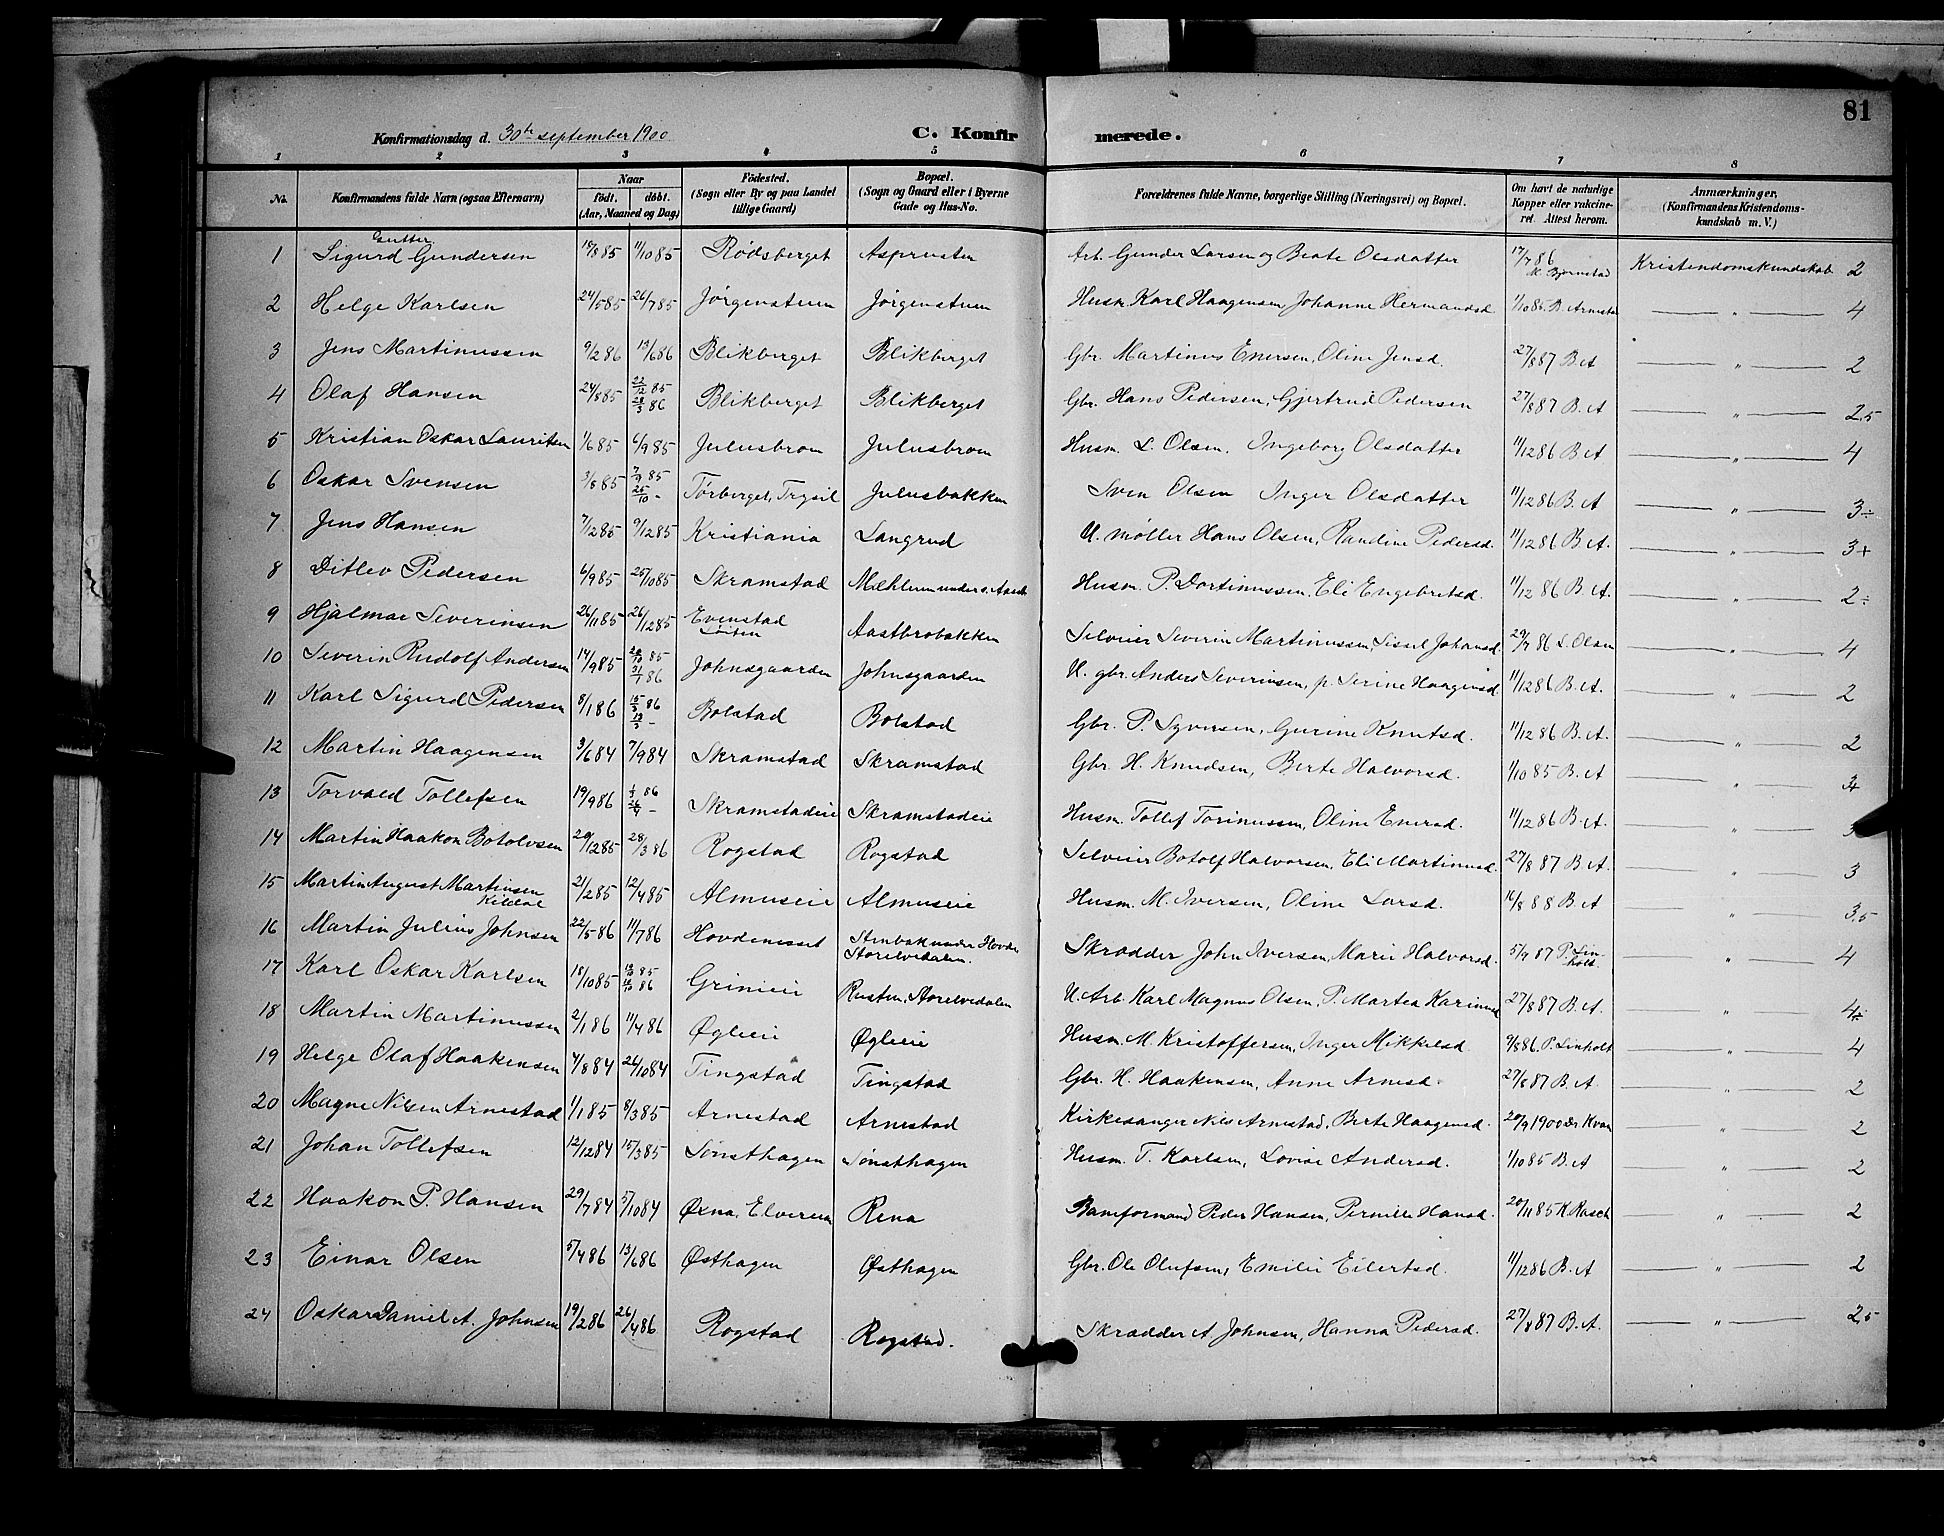 81
Konfirmationsdag d. 30te september 1900 C. Konfirmerede.
1 2 3 4 5 6 7 8
No. Konfirmandens fulde Navn (ogsaa Efternavn) Naar født. døbt. (Aar, Maaned og Dag) Fødested. (Sogn eller By og paa Landet tillige Gaard) Bopæl. (Sogn og Gaard eller i Byerne Gade og Hus-No. Forældrenes fulde Navne, borgerlige Stilling (Næringsvei) og Bopæl. Om havt de naturlige Kopper eller vakcineret. Attest herom. Anmærkninger, (Konfirmandens Kristendomskundskab m. V.)
Gutter
1 Sigurd Gundersen 18/8 85 11/10 85 Rødsberget Asprusten Arb. Gunder Larsen og Beate Olsdatter 17/7 86 M. Bjørnstad Kristendomskundskab 2
2 Helge Karlsen 24/5 85 26/7 85 Jørgenstuen Jørgenstuen Husm. Karl Haagensen, Johanne Hermandsd. 1/10 85. B. Arnestad — " — 4
3 Jens Martinussen 9/2 86 13/6 86 Blikberget Blikberget Gbr. Martinus Enersen, Oline Jensd. 27/8 87 B. A — " — 2
4 Olaf Hansen 24/8 85 22/12 85 28/3 86 Blikberget Blikberget Gbr. Hans Pedersen, Gjertrud Pedersen 27/8 87 B. A — " — 2,5
5 Kristian Oskar Lauritsen 1/6 85 6/9 85 Julusbroen Julusbroen Husm. L. Olsen. Ingeborg Olsdatter 11/12 86 B. A — " — 4
6 Oskar Svensen 3/8 85 7/9 85 25/10 - Tørberget, Trysil Julusbakken Sven Olsen Inger Olsdatter 11/12 86 B. A — " — 3÷
7 Jens Hansen 7/12 85 9/12 85 Kristiania Langrud U. møller Hans Olsen, Randine Pedersd. 11/12 86 B. A. — " — 3+
8 Ditlev Pedersen 6/9 85 25/10 85 Skramstad Mæhlum under s. Aasta Husm. P. Dortinussen, Eli Engebretsd. 11/12 86 B. A. — " — 2÷
9 Hjalmar Severinsen 26/11 85 26/12 85 Evenstad Løiten Aastbrobakken Selveier Severin Martinussen, Sissel Johansd. 29/7 86 L. Olsen — " — 4
10 Severin Rudolf Andersen 14/9 85 28/10 85 31/1 86 Johnsgaarden Johnsgaarden U. gbr. Anders Severinsen, p. Serine Haagensd 11/12 86 B. A. — " — 2
11 Karl Sigurd Pedersen 8/1 86 15/3 86 Bolstad Bolstad Gbr. P. Syversen, Gurine Knutsd. 11/12 86 B. A. — " — 2
12 Martin Haagensen 3/6 84 7/9 84 Skramstad Skramstad Gbr. H. Knudsen, Berte Halvorsd. 1/10 85 B. A — " —
13 Torvald Tollefsen 19/9 86 Skramstadeie Skramstadeie Husm. Tollef Torinussen, Oline Enersd. 11/12 86 B. A. — " — 3
14 Martin Haakon Botolvsen 20/12 85 28/3 86 Rogstad Rogstad Selveier Botolf Halvorsen, Eli Martinusd 27/8 87 B. A. — " — 3
15 Martin August Martinsen Kildal 21/2 85 12/4 85 Almuseie Almuseie Husm. M. Iversen, Oline Larsd. 16/8 88 B. A — " — 3,5
16 Martin Julius Johnsen 22/5 86 11/7 86 Hovdenisset Stenbak under Hovde Storelvedalen. Skrædder John Iversen, Marie Halvorsd. 5/9 87 P. Linholt. — " — 4
17 Karl Oskar Karlsen 18/10 85 Grinieie Rusten, Storelvedalen U. Arb. Karl Magnus Olsen, P. Martea Karinusd 27/8 87 B. A. — " — 4÷
18 Martin Martinussen 2/1 86 11/4 86 Øgleie Øgleie Husm. M. Kristoffersen, Inger Mikkelsd. 9/8 86. P. Linholt — " — 4
19 Helge Olaf Haakensen 4/8 84 26/10 84 Tingstad Tingstad Gbr. H. Haakensen, Anne Arnesd. 27/8 87 B. A — " — 2
20 Magne Nilsen Arnestad 1/1 85 8/3 85 Arnestad Arnestad Kirkesanger Nils Arnestad, Berte Haagensd. 20/9 1900 Dr. Kvam — " — 2
21 Johan Tollefsen 12/12 84 15/3 85 Sønsthagen Sønsthagen Husm. T. Karlsen, Lovise Andersd. 1/10 85 B. A — " — 2
22 Haakon P. Hansen 29/7 84 5/10 84 Øxna, Elverum Rena Banformand Peder Hansen, Pernille Hansd. 20/11 85 K. Rasch — " — 2
23 Einar Olsen 5/4 86 13/6 86 Østhagen Østhagen Gbr. Ole Olufsen, Emilie Eilertsd. 11/12 86 B. A — " — 2
24 Oskar Daniel A. Johnsen 19/2 86 26/4 86 Rogstad Rogstad. Skrædder A. Johnsen, Hanna Pedersd. 27/8 87 B. A. — " — 2,5